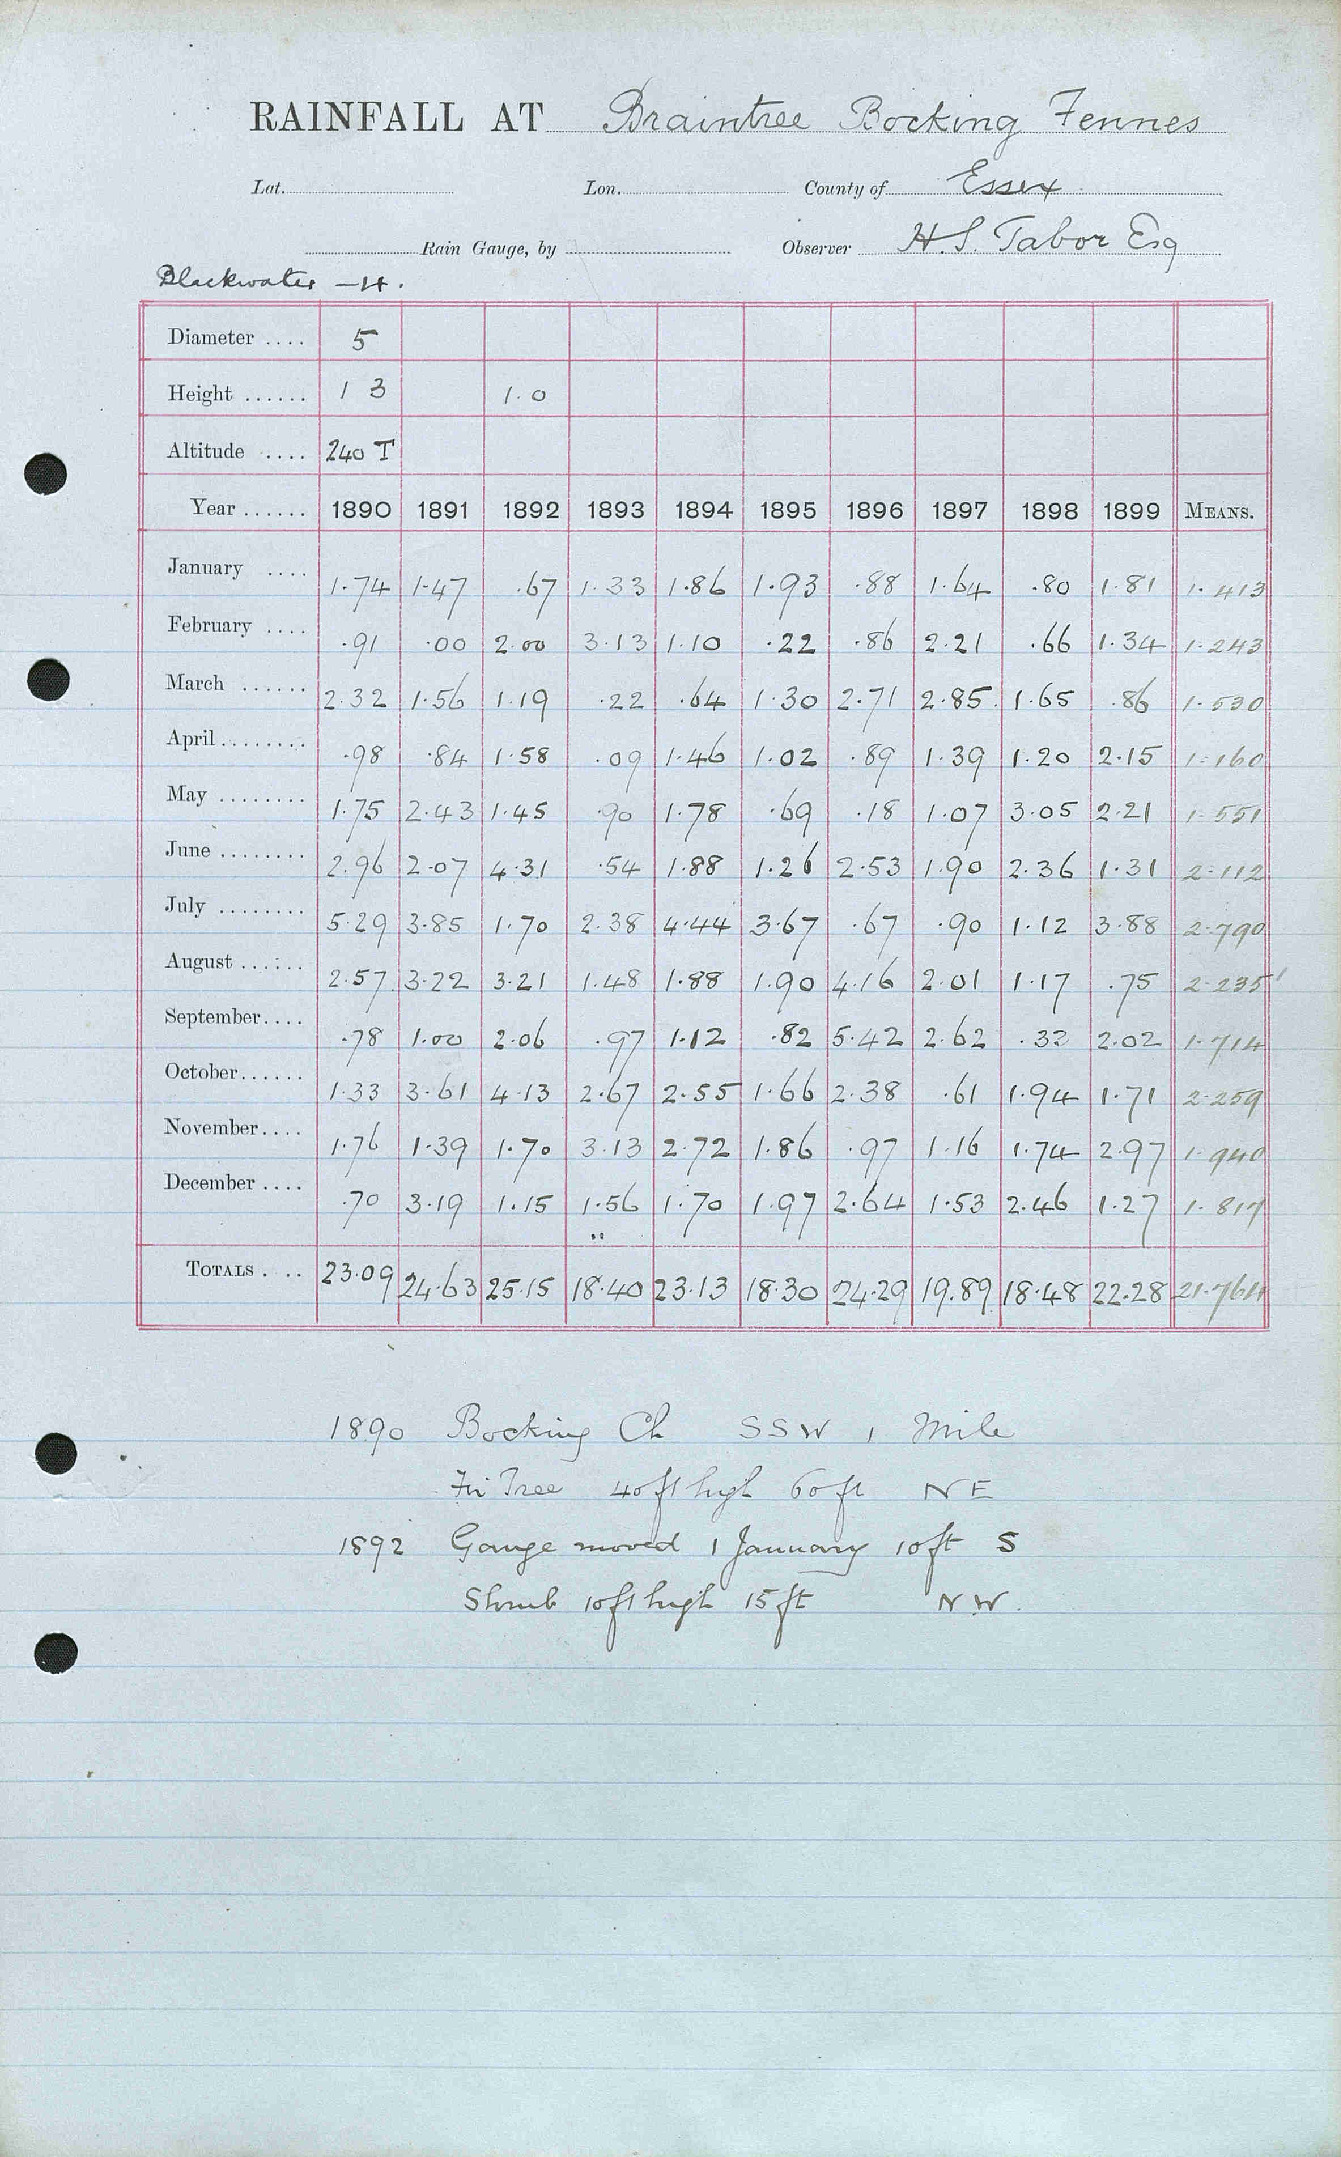 RAINFALL AT Braintree Bocking Fennes
Lat. Lon. County of Essex
Rain Gauge, by Observer H. S. Tabor Esq
Blackwater —H.
Diameter .... 5
Height ...... 1 3 1.0
Altitude .... 240 T
Year ...... 1890 1891 1892 1893 1894 1895 1896 1897 1898 1899 MEANS.
January .... 1.74 1.47 .67 1.33 1.86 1.93 .88 1.64 .80 1.81 1.413
February .... .91 .00 2.00 3.13 1.10 .22 .86 2.21 .66 1.34 1.243
March ...... 2.32 1.56 1.19 .22 .64 1.30 2.71 2.85 1.65 .86 1.530
April ........ .98 .84 1.58 .09 1.46 1.02 .89 1.39 1.20 2.15 1.160
May ........ 1.75 2.43 1.45 .90 1.78 .69 .18 1.07 3.05 2.21 1.551
June ........ 2.96 2.07 4.31 .54 1.88 1.26 2.53 1.90 2.36 1.31 2.112
July ........ 5.29 3.85 1.70 2.38 4.44 3.67 .67 .90 1.12 3.88 2.790
August ...... 2.57 3.22 3.21 1.48 1.88 1.90 4.16 2.01 1.17 .75 2.235
September .... .78 1.00 2.06 .97 1.12 .82 5.42 2.62 .32 2.02 1.714
October ...... 1.33 3.61 4.13 2.67 2.55 1.66 2.38 .61 1.94 1.71 2.259
November .... 1.76 1.39 1.70 3.13 2.72 1.86 .97 1.16 1.74 2.97 1.940
December .... .70 3.19 1.15 1.56 1.70 1.97 2.64 1.53 2.46 1.27 1.817
TOTALS .... 23.09 24.63 25.15 18.40 23.13 18.30 24.29 19.89 18.48 22.28 21.764
1890 Bocking Ch SSW 1 Mile
Fir Tree 40 ft high 60 ft NE
1892 Gauge moved 1 January 10 ft S
Shrub 10 ft high 15 ft NW.